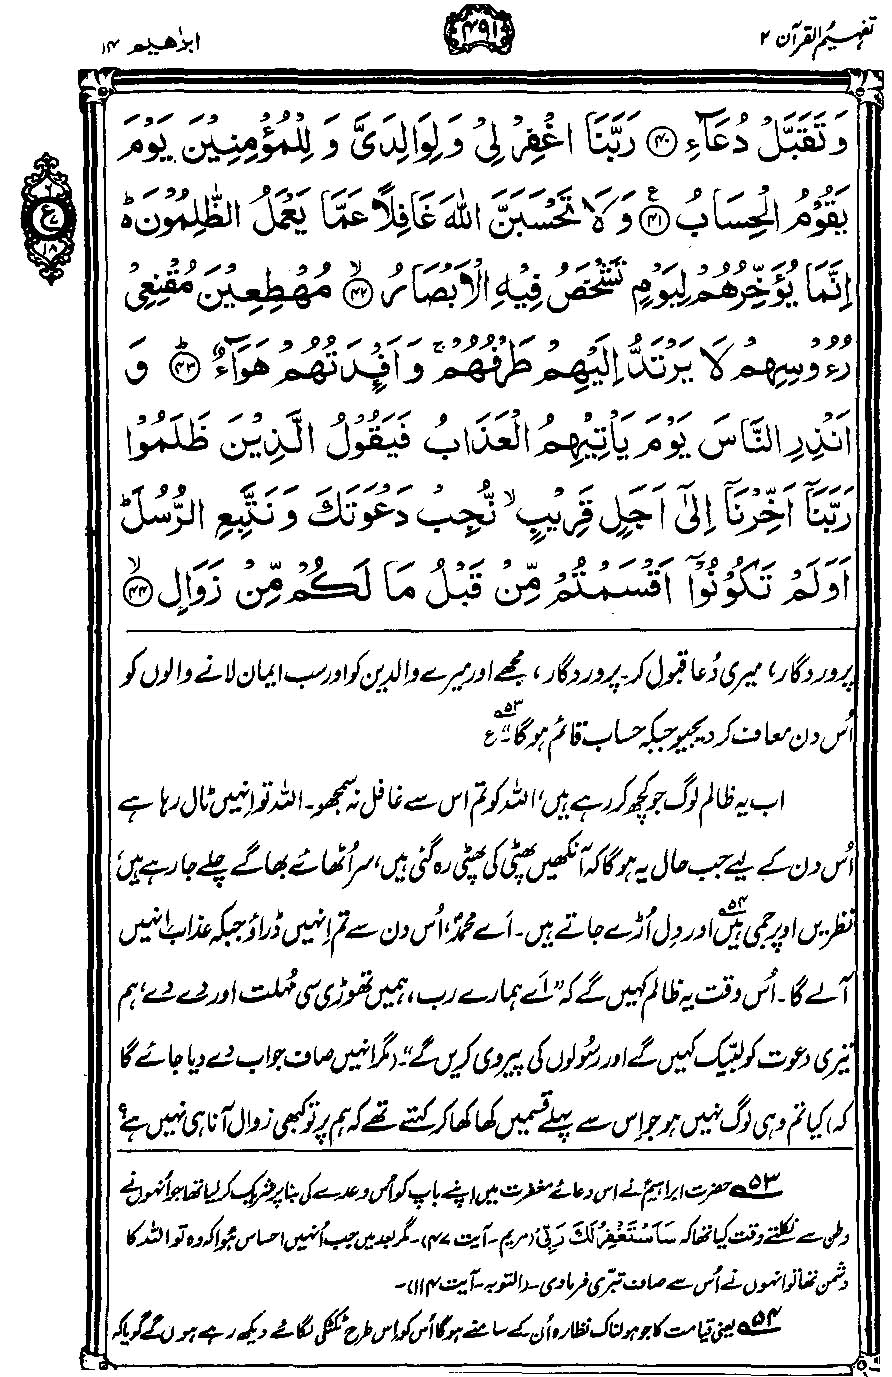 تفہیم القرآن ۲
۴۹۱
ابراھیم ۱۴
وَتَقَبَّلْ دُعَآءِ ﴿۴۰﴾ رَبَّنَا اغْفِرْ لِیْ وَلِوَالِدَیَّ وَ لِلْمُؤْمِنِیْنَ یَوْمَ
یَقُوْمُ الْحِسَابُ ﴿۴۱﴾ع وَلَا تَحْسَبَنَّ اللّٰهَ غَافِلًا عَمَّا یَعْمَلُ الظّٰلِمُوْنَ ؕ
اِنَّمَا یُؤَخِّرُهُمْ لِیَوْمٍ تَشْخَصُ فِیْهِ الْاَبْصَارُ ﴿۴۲﴾ۙ مُهْطِعِیْنَ مُقْنِعِیْ
رُءُوْسِهِمْ لَا یَرْتَدُّ اِلَیْهِمْ طَرْفُهُمْ ۚ وَاَفْـِٕدَتُهُمْ هَوَآءٌ ﴿۴۳﴾ؕ وَ
اَنْذِرِ النَّاسَ یَوْمَ یَاْتِیْهِمُ الْعَذَابُ فَیَقُوْلُ الَّذِیْنَ ظَلَمُوْا
رَبَّنَاۤ اَخِّرْنَاۤ اِلٰۤی اَجَلٍ قَرِیْبٍ ۙ نُّجِبْ دَعْوَتَكَ وَنَتَّبِعِ الرُّسُلَ ؕ
اَوَلَمْ تَكُوْنُوْۤا اَقْسَمْتُمْ مِّنْ قَبْلُ مَا لَكُمْ مِّنْ زَوَالٍ ﴿۴۴﴾ۙ
ع
۱۸
پروردگار، میری دُعا قبول کر۔ پروردگار، مجھے اور میرے والدین کو اور سب ایمان لانے والوں کو
اُس دن معاف کر دیجیو جبکہ حساب قائم ہوگا۔“۵۳ ع
اب یہ ظالم لوگ جو کچھ کر رہے ہیں، اللہ کو تم اس سے غافل نہ سمجھو۔ اللہ تو انہیں ٹال رہا ہے
اُس دن کے لیے جب حال یہ ہوگا کہ آنکھیں پھٹی کی پھٹی رہ گئی ہیں، سر اُٹھائے بھاگے چلے جا رہے ہیں،
نظریں اوپر جمی ہیں۵۴ اور دل اُڑے جاتے ہیں۔ اَے محمدؐ، اُس دن سے تم اِنہیں ڈراؤ جبکہ عذاب انہیں
آلے گا۔ اُس وقت یہ ظالم کہیں گے کہ ”اَے ہمارے رب، ہمیں تھوڑی سی مُہلت اور دے دے، ہم
تیری دعوت کو لبّیک کہیں گے اور رسُولوں کی پیروی کریں گے“۔ (مگر انہیں صاف جواب دے دیا جائے گا
کہ) کیا تم وہی لوگ نہیں ہو جو اِس سے پہلے قسمیں کھا کھا کر کہتے تھے کہ ہم پر تو کبھی زوال آنا ہی نہیں ہے؟
۵۳ حضرت ابراہیمؑ نے اس دعائے مغفرت میں اپنے باپ کو اُس وعدے کی بنا پر شریک کر لیا تھا جو اُنہوں نے
وطن سے نکلتے وقت کیا تھا کہ سَاَسْتَغْفِرُ لَكَ رَبِّیْ (مریم۔ آیت ۴۷)۔ مگر بعد میں جب اُنہیں احساس ہُوا کہ وہ تو اللہ کا
دشمن تھا تو انہوں نے اُس سے صاف تبرّی فرما دی۔ (التوبہ۔ آیت ۱۱۴)۔
۵۴ یعنی قیامت کا جو ہولناک نظارہ اُن کے سامنے ہوگا اُس کو اِس طرح ٹکٹکی لگائے دیکھ رہے ہوں گے گویا کہ